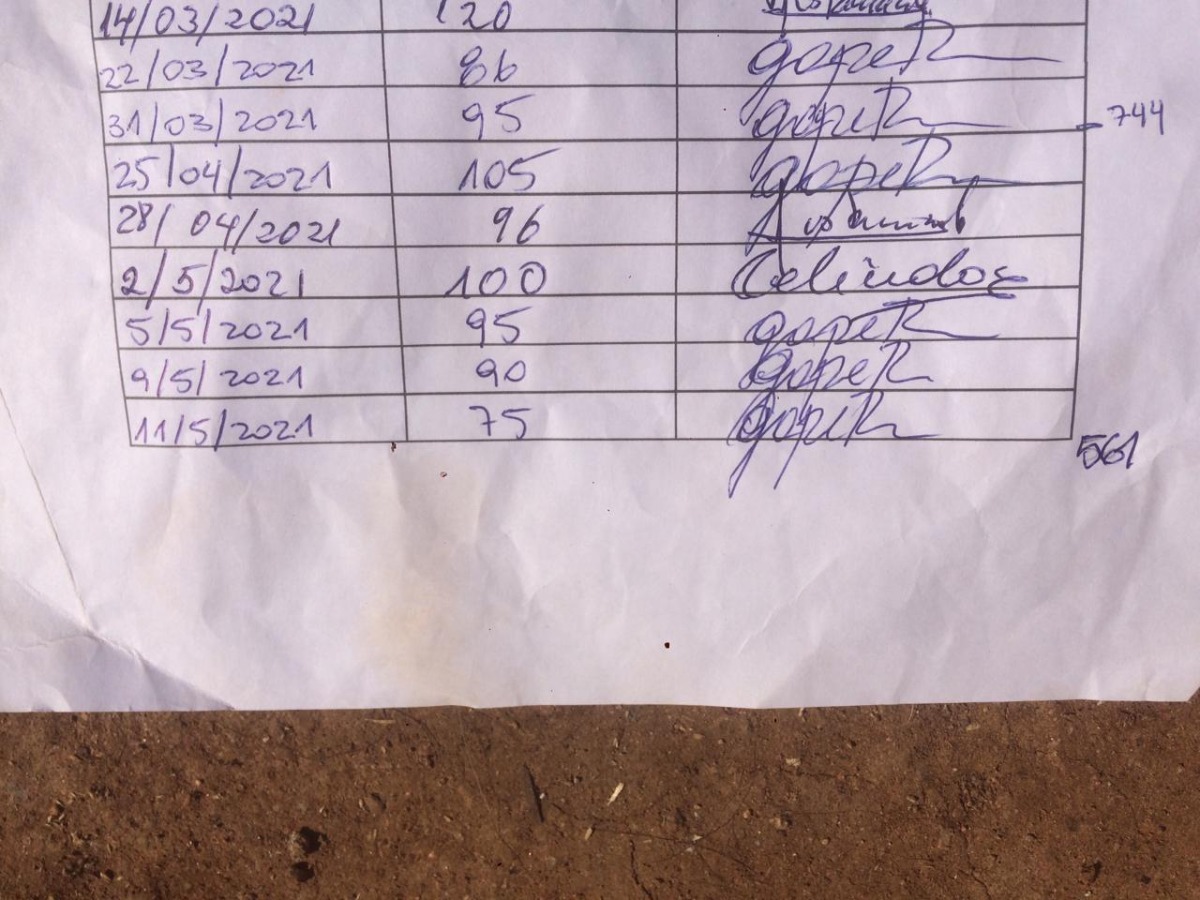 14/03/2021 120
22/03/2021 86 gopeR
31/03/2021 95 gopeR 744
25/04/2021 105 gopeR
28/04/2021 96
2/5/2021 100 Celindos
5/5/2021 95 gopeR
9/5/2021 90 gopeR
11/5/2021 75 gopeR
561